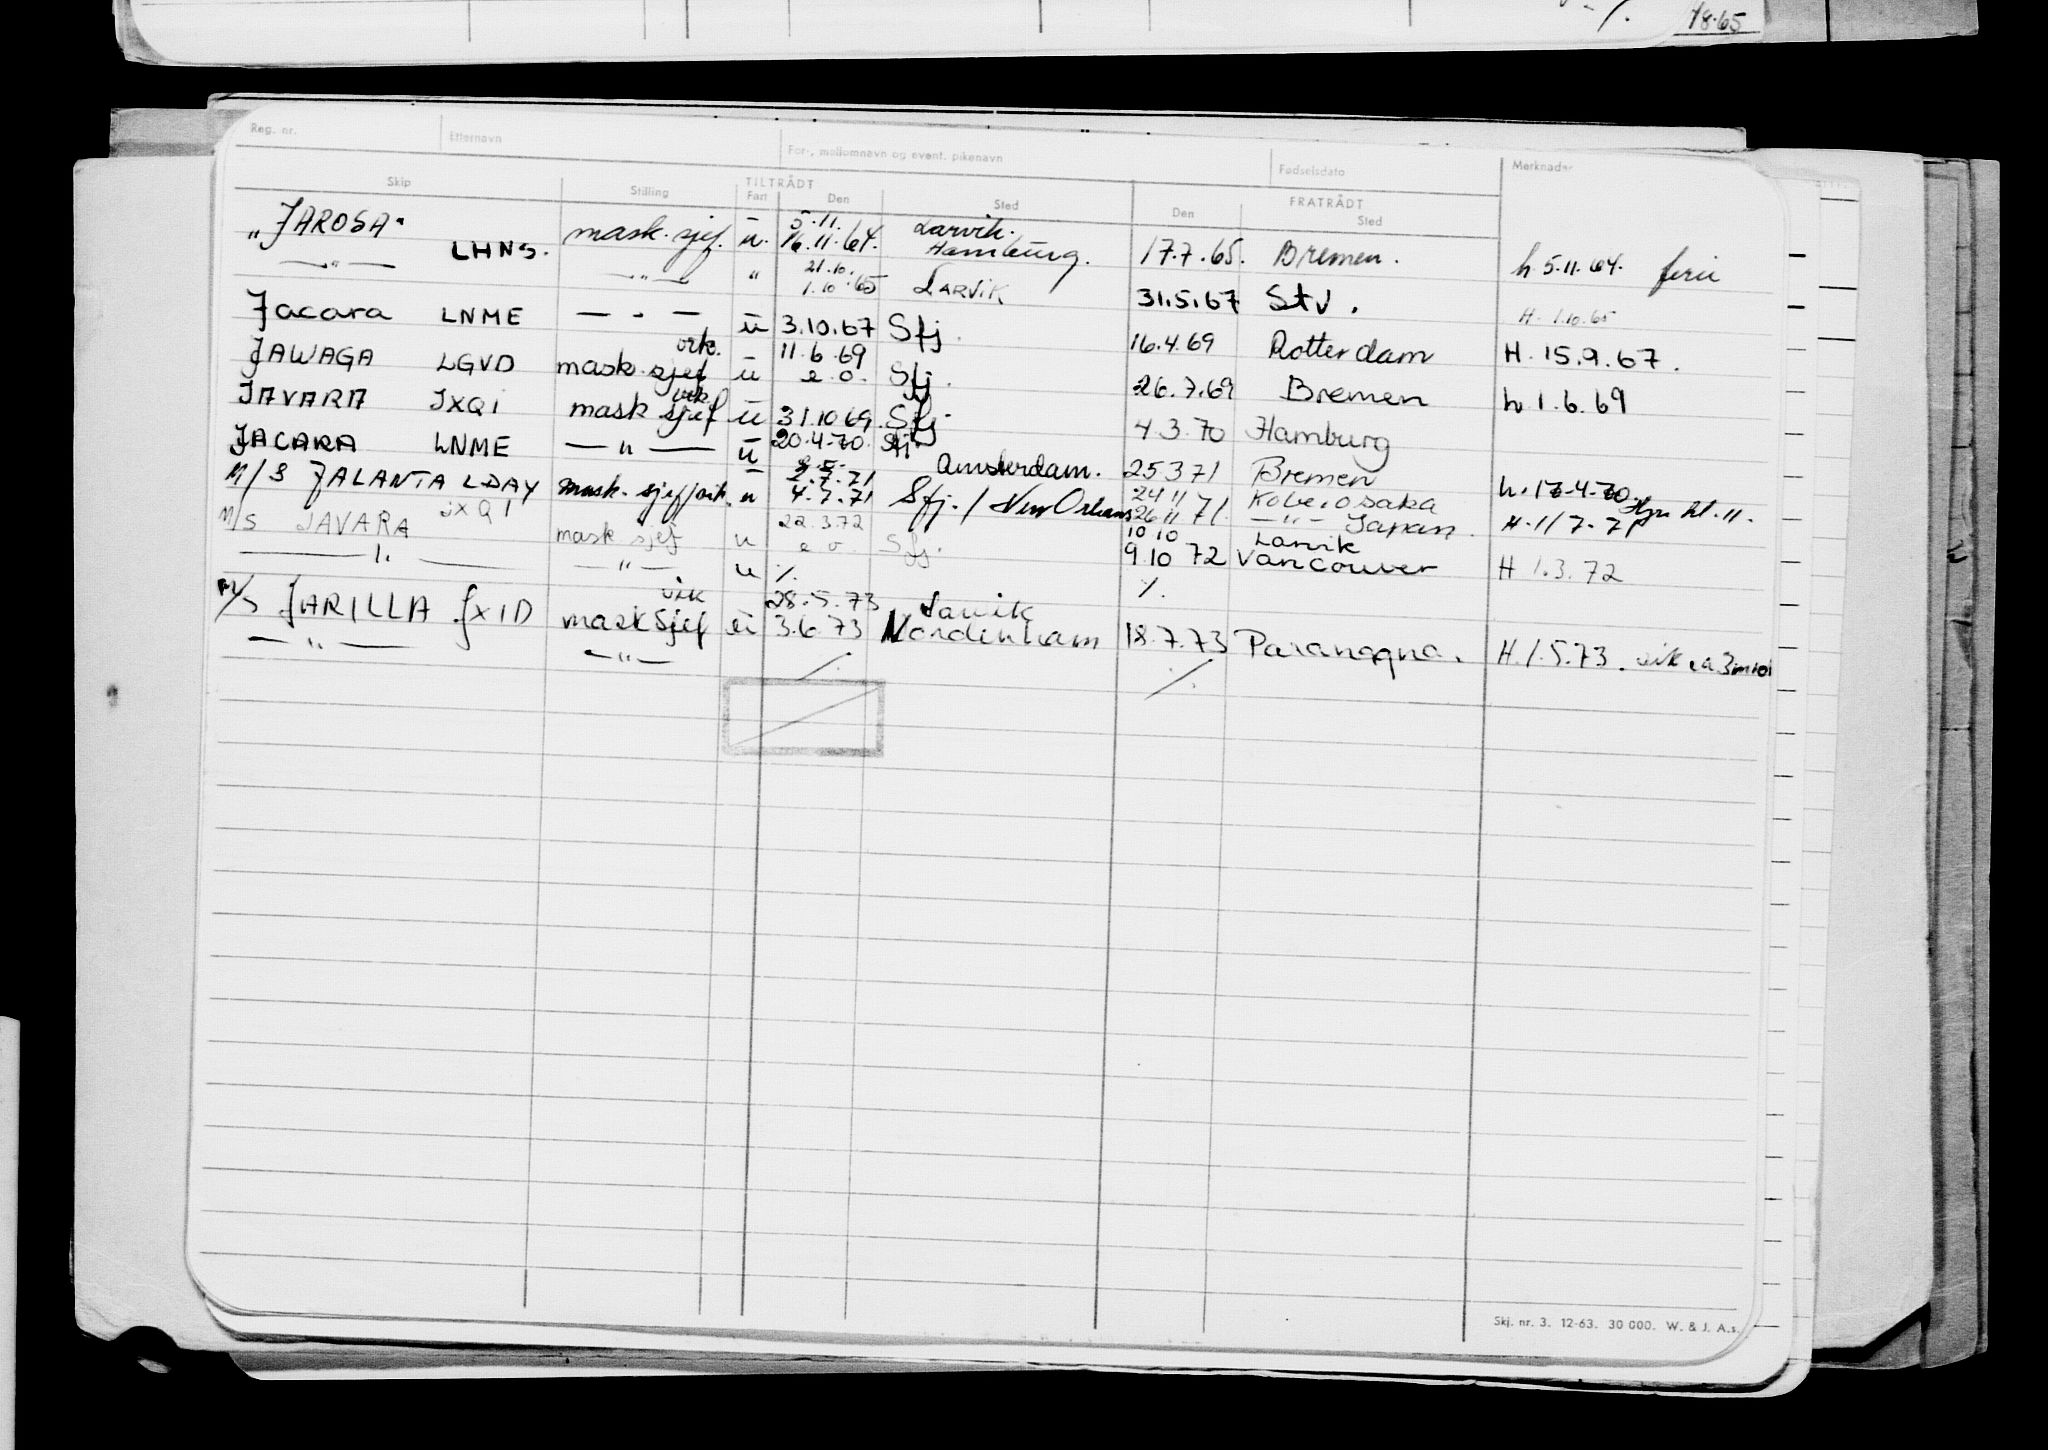 18.65
Reg. nr. Etternavn For-, mellomnavn og event. pikenavn Fødselsdato Merknader
Skip Stilling TILTRÅDT Fart Den Sted FRATRÅDT Den Sted
5.11. Larvik.
"JAROSA" LHNS. mask. sjef. u. 16.11.64. Hamburg. 17.7.65. Bremen. h. 5.11.64. ferie
21.10.
— " — — " — " 1.10.65 LARVIK 31.5.67 Stv. H. 1.10.65
Jacara LNME — " — u 3.10.67 Sfj. 16.4.69 Rotterdam H. 15.9.67.
vik. 11.6.69
JAWAGA LGVD mask. sjef u e.o. Sfj. 26.7.69 Bremen h. 1.6.69
vik
JAVARA JXQI mask sjef u 31.10.69. Sfj. 4.3.70 Hamburg
JACARA LNME — " — u 20.4.70. Sfj. 25 3 71 Bremen h. 17-4-70.
2.7.71 Amsterdam. 24 11 Kobe, Osaka
M/S JALANTA LDAY mask. sjef/vik. u 4.7.71 Sfj. / New Orleans 26 11 71. — " — Japan. H. 1/7-71
22.3.72 10 10 Larvik
M/S JAVARA JXQI mask sjef u e o Sfj. 9.10 72 Vancouver H 1.3.72
— " — — " — u % %
vik 28.5.73 Larvik
M/S JARILLA JXID mask sjef u 3.6.73 Nordenham 18.7.73 Paranagna. H. 1.5.73. vik ca 3 mnd
— " — — " — % %
Skj. nr. 3. 12-63. 30 000. W. & J. A.s.